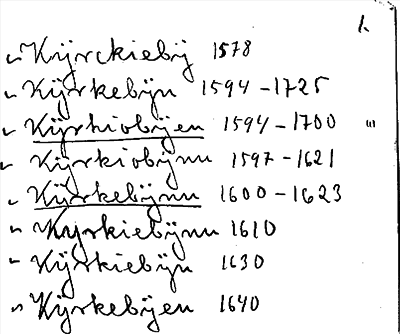 1.
Kÿrckiebÿ 1578
Kÿrkebÿn 1594-1725
Kÿrkiobÿen 1594-1700
Kÿrkiobÿnn 1597-1621
Kÿrkebÿnn 1600-1623
Kyrkiebÿnn 1610
Kÿrkiebÿn 1630
Kÿrkebÿen 1640